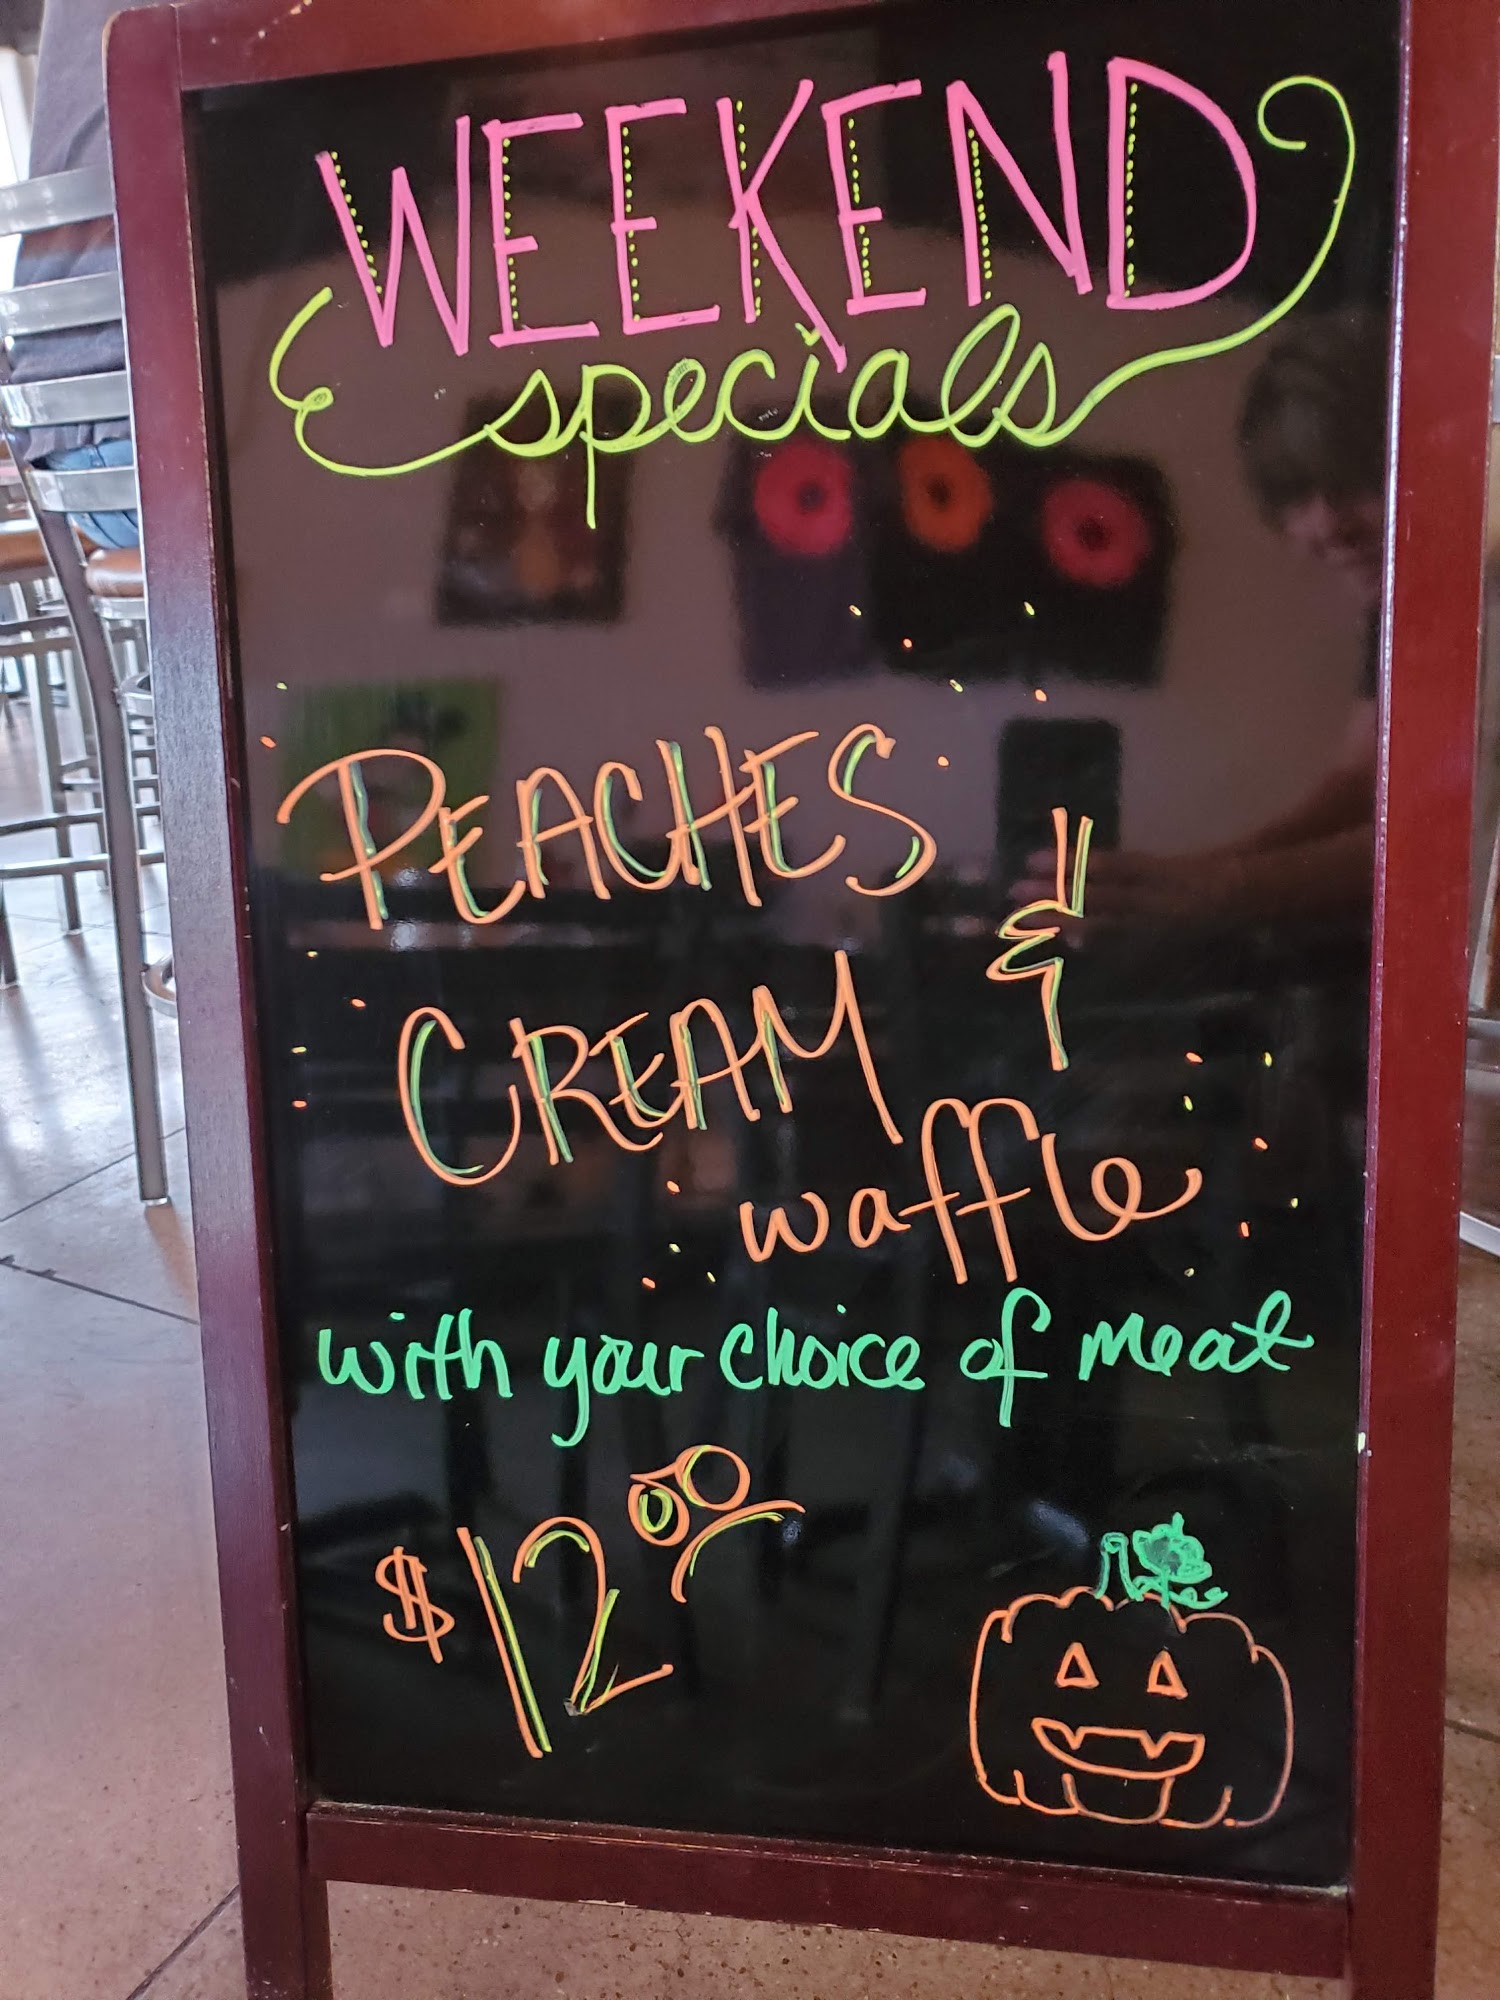 WEEKEND
specials
PEACHES &
CREAM
waffle
with your choice of meat
$12.00